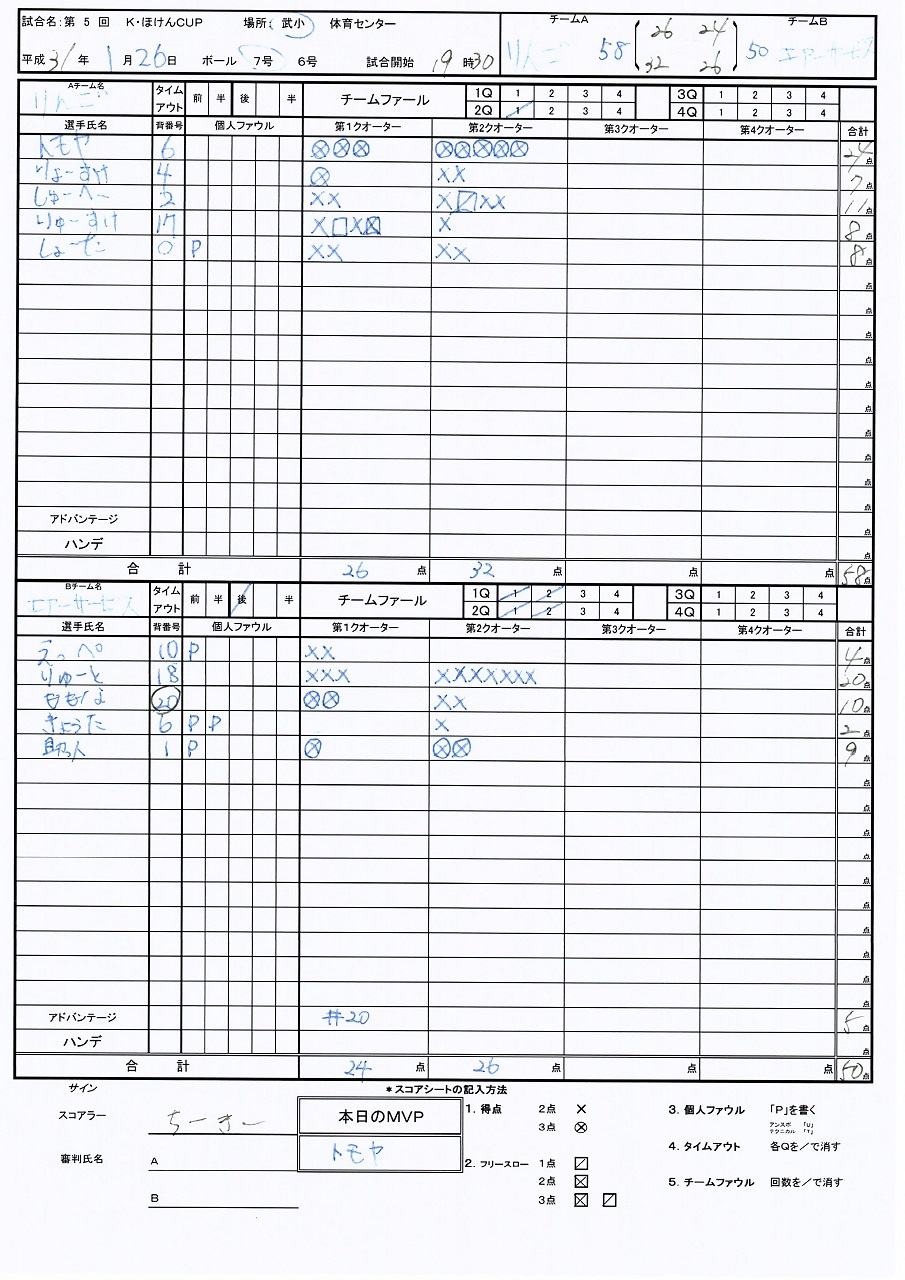 試合名:第 5 回 K・ほけんCUP 場所: 武小 体育センター チームA チームB
りんご 58 26 24 32 26 50 エアーサービス
平成 31 年 1 月 26 日 ボール 7号 6号 試合開始 19 時 30
Aチーム名 りんご タイムアウト 前 半 後 半 チームファール 1Q 1 2 3 4 3Q 1 2 3 4
2Q 1 2 3 4 4Q 1 2 3 4
選手氏名 背番号 個人ファウル 第1クオーター 第2クオーター 第3クオーター 第4クオーター 合計
トモヤ 6 ⊗⊗⊗ ⊗⊗⊗⊗⊗ 24点
りょーすけ 4 ⊗ ×× 7点
しゅーへー 2 ×× ×〼×× 11点
りゅーすけ 17 ×□×☒ × 8点
しょーた 0 P ×× ×× 8点
点
点
点
点
点
点
点
点
点
点
アドバンテージ 点
ハンデ 点
合 計 26 点 32 点 点 点 58点
Bチーム名 エアーサービス タイムアウト 前 半 後 半 チームファール 1Q 1 2 3 4 3Q 1 2 3 4
2Q 1 2 3 4 4Q 1 2 3 4
選手氏名 背番号 個人ファウル 第1クオーター 第2クオーター 第3クオーター 第4クオーター 合計
えっぺ 10 P ×× 4点
りゅーと 18 ××× ××××××× 20点
20 ⊗⊗ ×× 10点
きょうた 6 P P × 2点
助っ人 1 P ⊗ ⊗⊗ 9点
点
点
点
点
点
点
点
点
点
点
アドバンテージ #20 5点
ハンデ 点
合 計 24 点 26 点 点 点 50点
サイン *スコアシートの記入方法
スコアラー ちーきー 本日のMVP トモヤ
審判氏名 A
B
1. 得点 2点 ×
3点 ⊗
2. フリースロー 1点 〼
2点 ☒
3点 ☒ 〼
3. 個人ファウル 「P」を書く
アンスポ 「U」
テクニカル 「T」
4. タイムアウト 各Qを/で消す
5. チームファウル 回数を/で消す